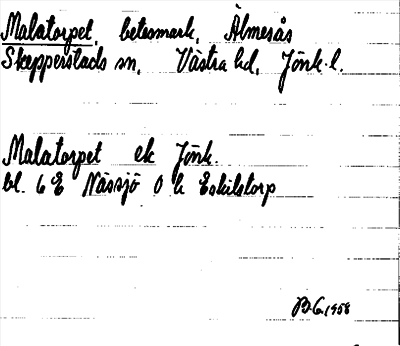 Malatorpet, betesmark, Älmesås
Skepperstads sn, Västra hd, Jönk. l.
Malatorpet ek Jönk.
bl. 6 E Nässjö 0 h Eskilstorp
B.G. 1958